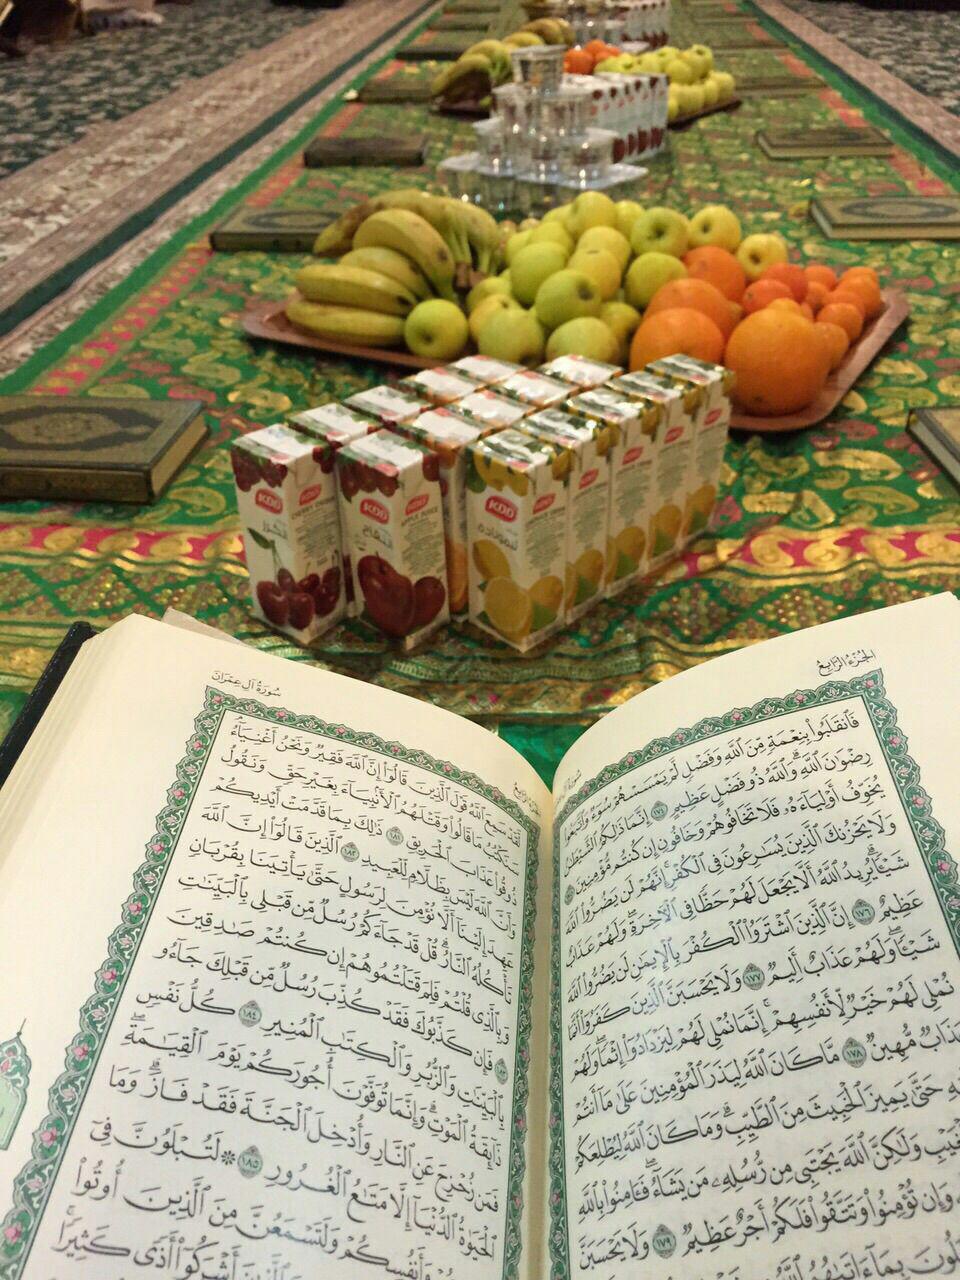 KDD
CHERRY DRINK
KDD
APPLE JUICE
تفاح
KDD
ليمونادة
الجُزءُ الرَّابِعُ
فَٱنقَلَبُوا۟ بِنِعْمَةٍ مِّنَ ٱللَّهِ وَفَضْلٍ لَّمْ يَمْسَسْهُمْ سُوٓءٌ وَٱتَّبَعُوا۟
رِضْوَٰنَ ٱللَّهِ ۗ وَٱللَّهُ ذُو فَضْلٍ عَظِيمٍ ١٧٤ إِنَّمَا ذَٰلِكُمُ ٱلشَّيْطَٰنُ
يُخَوِّفُ أَوْلِيَآءَهُۥ فَلَا تَخَافُوهُمْ وَخَافُونِ إِن كُنتُم مُّؤْمِنِينَ
وَلَا يَحْزُنكَ ٱلَّذِينَ يُسَٰرِعُونَ فِى ٱلْكُفْرِ ۚ إِنَّهُمْ لَن يَضُرُّوا۟ ٱللَّهَ
شَيْـًٔا ۗ يُرِيدُ ٱللَّهُ أَلَّا يَجْعَلَ لَهُمْ حَظًّا فِى ٱلْـَٔاخِرَةِ ۖ وَلَهُمْ عَذَابٌ
عَظِيمٌ ١٧٦ إِنَّ ٱلَّذِينَ ٱشْتَرَوُا۟ ٱلْكُفْرَ بِٱلْإِيمَٰنِ لَن يَضُرُّوا۟ ٱللَّهَ
شَيْـًٔا وَلَهُمْ عَذَابٌ أَلِيمٌ ١٧٧ وَلَا يَحْسَبَنَّ ٱلَّذِينَ كَفَرُوٓا۟ أَنَّمَا
نُمْلِى لَهُمْ خَيْرٌ لِّأَنفُسِهِمْ ۚ إِنَّمَا نُمْلِى لَهُمْ لِيَزْدَادُوٓا۟ إِثْمًا ۚ وَلَهُمْ
عَذَابٌ مُّهِينٌ ١٧٨ مَّا كَانَ ٱللَّهُ لِيَذَرَ ٱلْمُؤْمِنِينَ عَلَىٰ مَآ أَنتُمْ
حَتَّىٰ يَمِيزَ ٱلْخَبِيثَ مِنَ ٱلطَّيِّبِ ۗ وَمَا كَانَ ٱللَّهُ لِيُطْلِعَكُمْ
ٱلْغَيْبِ وَلَٰكِنَّ ٱللَّهَ يَجْتَبِى مِن رُّسُلِهِۦ مَن يَشَآءُ ۖ فَـَٔامِنُوا۟ بِٱللَّهِ
وَإِن تُؤْمِنُوا۟ وَتَتَّقُوا۟ فَلَكُمْ أَجْرٌ عَظِيمٌ ١٧٩ وَلَا يَحْسَبَنَّ
بِمَآ ءَاتَىٰهُمُ ٱللَّهُ
سُورَةُ آلِ عِمْرَانَ
لَّقَدْ سَمِعَ ٱللَّهُ قَوْلَ ٱلَّذِينَ قَالُوٓا۟ إِنَّ ٱللَّهَ فَقِيرٌ وَنَحْنُ أَغْنِيَآءُ ۘ
سَنَكْتُبُ مَا قَالُوا۟ وَقَتْلَهُمُ ٱلْأَنۢبِيَآءَ بِغَيْرِ حَقٍّ وَنَقُولُ
ذُوقُوا۟ عَذَابَ ٱلْحَرِيقِ ١٨١ ذَٰلِكَ بِمَا قَدَّمَتْ أَيْدِيكُمْ
وَأَنَّ ٱللَّهَ لَيْسَ بِظَلَّامٍ لِّلْعَبِيدِ ١٨٢ ٱلَّذِينَ قَالُوٓا۟ إِنَّ ٱللَّهَ
عَهِدَ إِلَيْنَآ أَلَّا نُؤْمِنَ لِرَسُولٍ حَتَّىٰ يَأْتِيَنَا بِقُرْبَانٍ
تَأْكُلُهُ ٱلنَّارُ ۗ قُلْ قَدْ جَآءَكُمْ رُسُلٌ مِّن قَبْلِى بِٱلْبَيِّنَٰتِ
وَبِٱلَّذِى قُلْتُمْ فَلِمَ قَتَلْتُمُوهُمْ إِن كُنتُمْ صَٰدِقِينَ
فَإِن كَذَّبُوكَ فَقَدْ كُذِّبَ رُسُلٌ مِّن قَبْلِكَ جَآءُو
بِٱلْبَيِّنَٰتِ وَٱلزُّبُرِ وَٱلْكِتَٰبِ ٱلْمُنِيرِ ١٨٤ كُلُّ نَفْسٍ
ذَآئِقَةُ ٱلْمَوْتِ ۗ وَإِنَّمَا تُوَفَّوْنَ أُجُورَكُمْ يَوْمَ ٱلْقِيَٰمَةِ ۖ
فَمَن زُحْزِحَ عَنِ ٱلنَّارِ وَأُدْخِلَ ٱلْجَنَّةَ فَقَدْ فَازَ ۗ وَمَا
ٱلْحَيَوٰةُ ٱلدُّنْيَآ إِلَّا مَتَٰعُ ٱلْغُرُورِ ١٨٥ ۞ لَتُبْلَوُنَّ فِىٓ
وَأَنفُسِكُمْ وَلَتَسْمَعُنَّ مِنَ ٱلَّذِينَ أُوتُوا۟
ٱلَّذِينَ أَشْرَكُوٓا۟ أَذًى كَثِيرًا ۚ